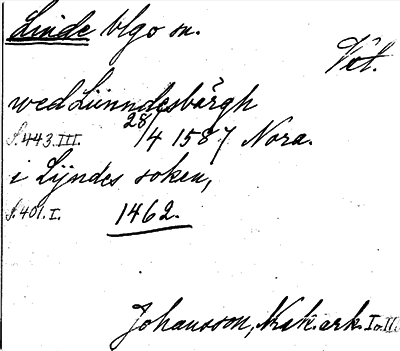 Linde blgo sn.
Vstl.
wed Lünndesbärgh
s. 443. III. 28/4 1587 Nora.
i Lijndes soken,
s. 401. I. 1462.
Johansson, Nrak. ark. I o. III.